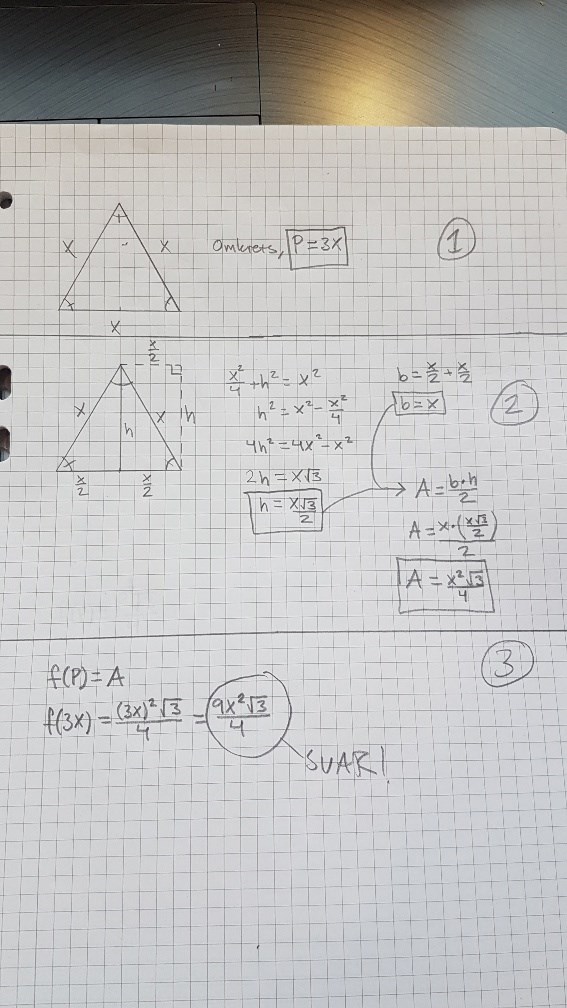 x x Omkrets, P=3x 1
x
x/2
x x h h
x/2 x/2
x²/4 + h² = x²
h² = x² - x²/4
4h² = 4x² - x²
2h = x√3
h = x√3/2
b = x/2 + x/2 2
b = x
A = b·h/2
A = x·(x√3/2)/2
A = x²√3/4
f(P) = A 3
f(3x) = (3x)²√3/4 = 9x²√3/4
SVAR!